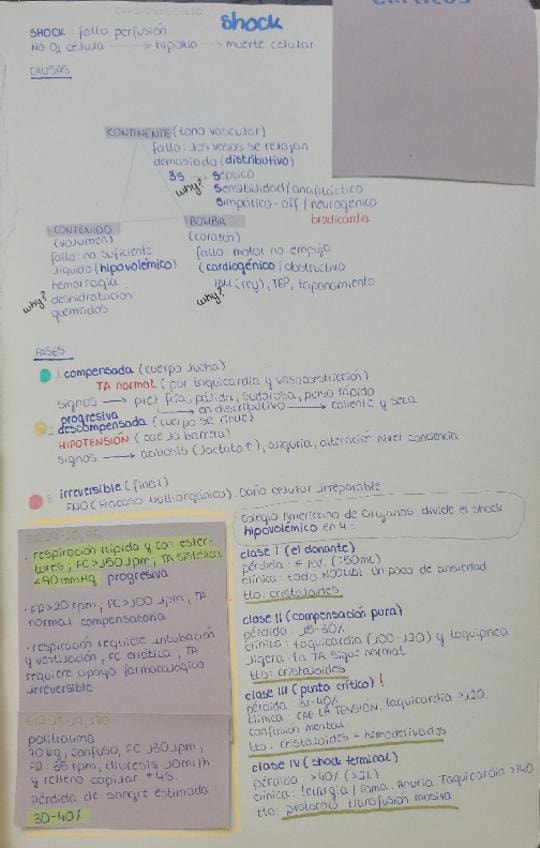 shock
SHOCK : fallo perfusión
NO O2 célula → hipoxia → muerte celular
CAUSAS
CONTINENTE (tono vascular)
fallo: los vasos se relajan
demasiado (distributivo)
3s
séptico
why?
sensibilidad/anafiláctico
simpático-off/neurogénico
bradicardia
CONTENIDO
(volumen)
fallo: no suficiente
líquido (hipovolémico)
hemorragia
why? deshidratación
quemados
BOMBA
(corazón)
fallo motor no empuja
(cardiogénico/obstructivo
IAM (rey), TEP, taponamiento
why?
FASES
1: compensada (cuerpo lucha)
TA normal (por taquicardia y vasoconstricción)
signos → piel fría, pálida, sudorosa, pulso rápido
en distributivo → caliente y seca
progresiva
2: descompensada (cuerpo se rinde)
HIPOTENSIÓN (cae la barrera)
signos → acidosis (lactato ↑), oliguria, alteración nivel conciencia
3: irreversible (final)
FMO (Fracaso Multiorgánico). Daño celular irreparable
· respiración rápida y con ester-
tores, FC >150 lpm, TA sistólica
<90 mmHg progresiva
· FR>20 rpm, FC>100 lpm, TA
normal compensatoria
· respiración requiere intubación
y ventilación, FC errática, TA
requiere apoyo farmacológico
irreversible
politrauma
70kg, confuso, FC 130 lpm,
FR: 35 rpm, diuresis 10ml/h
y relleno capilar +4s.
Pérdida de sangre estimada:
30-40%
Colegio Americano de Cirujanos divide el shock
hipovolémico en 4:
clase I (el donante)
pérdida: ≤ 15% (750ml)
clínica: todo NORMAL. Un poco de ansiedad
tto: cristaloides
clase II (compensación pura)
pérdida: 15-30%
clínica: taquicardia (100-120) y taquipnea
ligera. La TA sigue normal
tto: cristaloides
clase III (punto crítico) !
pérdida: 31-40%
clínica: CAE LA TENSIÓN. Taquicardia >120.
confusión mental.
tto: cristaloides + hemoderivados
clase IV (shock terminal)
pérdida: >40% (>2L)
clínica: letargia / coma. Anuria. Taquicardia >140
tto: protocolo transfusión masiva